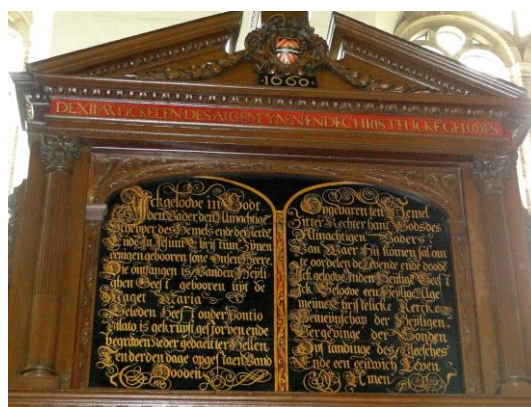 1660
DE XII ARTICKELEN DES ALGEMYNEN ENDE CHRISTELICKE GELOOFS
Ick geloove in Godt
den Vader den Almachtige
Schepper des Hemels ende der Aerd
Ende In Jesum Christum Zynen
eenigen gebooren sone Onsen Heere.
Die omfangen is vanden Heyli
ghen Geest gebooren uyt de
Maget Maria
Geleden Heeft onder Pontio
Pilato is gekruyst gestorven ende
begraven neder gedaelt ter Hellen
Ten derden daage opgestaen vand
Dooden
Opgevaren ten Hemel
Zitter Rechter hant Gods des
Almachtigen Vaders
Van Waer Hy komen sal om
te oordelen de Levende ende doode
Ick geloove Inden Heylige Geest
Ick Geloove een Heylige Alge
meine Christelicke Kercke
Gemeynschap der Heyligen.
Vergevinge der Sonden
Opstandinge des Vleesches
Ende een eeuwich Leven
Amen